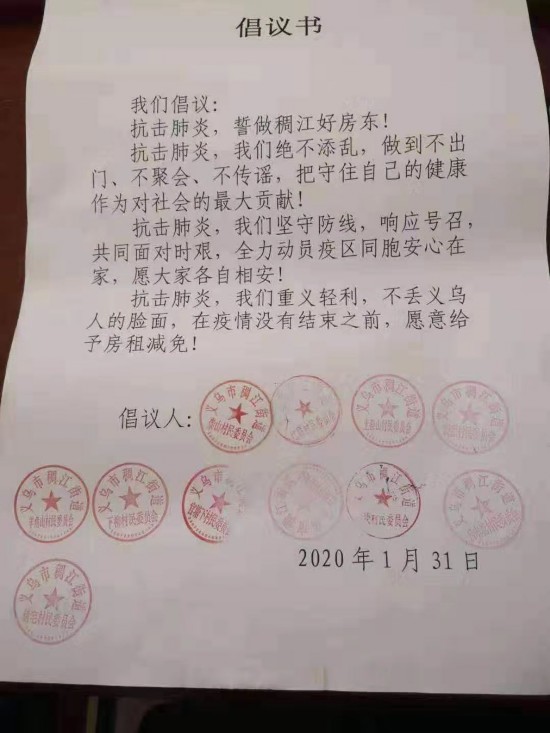 倡议书
我们倡议：
抗击肺炎，誓做稠江好房东！
抗击肺炎，我们绝不添乱，做到不出
门、不聚会、不传谣，把守住自己的健康
作为对社会的最大贡献！
抗击肺炎，我们坚守防线，响应号召，
共同面对时艰，全力动员疫区同胞安心在
家，愿大家各自相安！
抗击肺炎，我们重义轻利，不丢义乌
人的脸面，在疫情没有结束之前，愿意给
予房租减免！
倡议人：
义乌市稠江街道 村民委员会
义乌市稠江街道 村民委员会
义乌市稠江街道
义乌市稠江街道 村民委员会
义乌市稠江街道 下 村民委员会
义乌市稠江街道
2020年1月31日
义乌市稠江街道 村民委员会